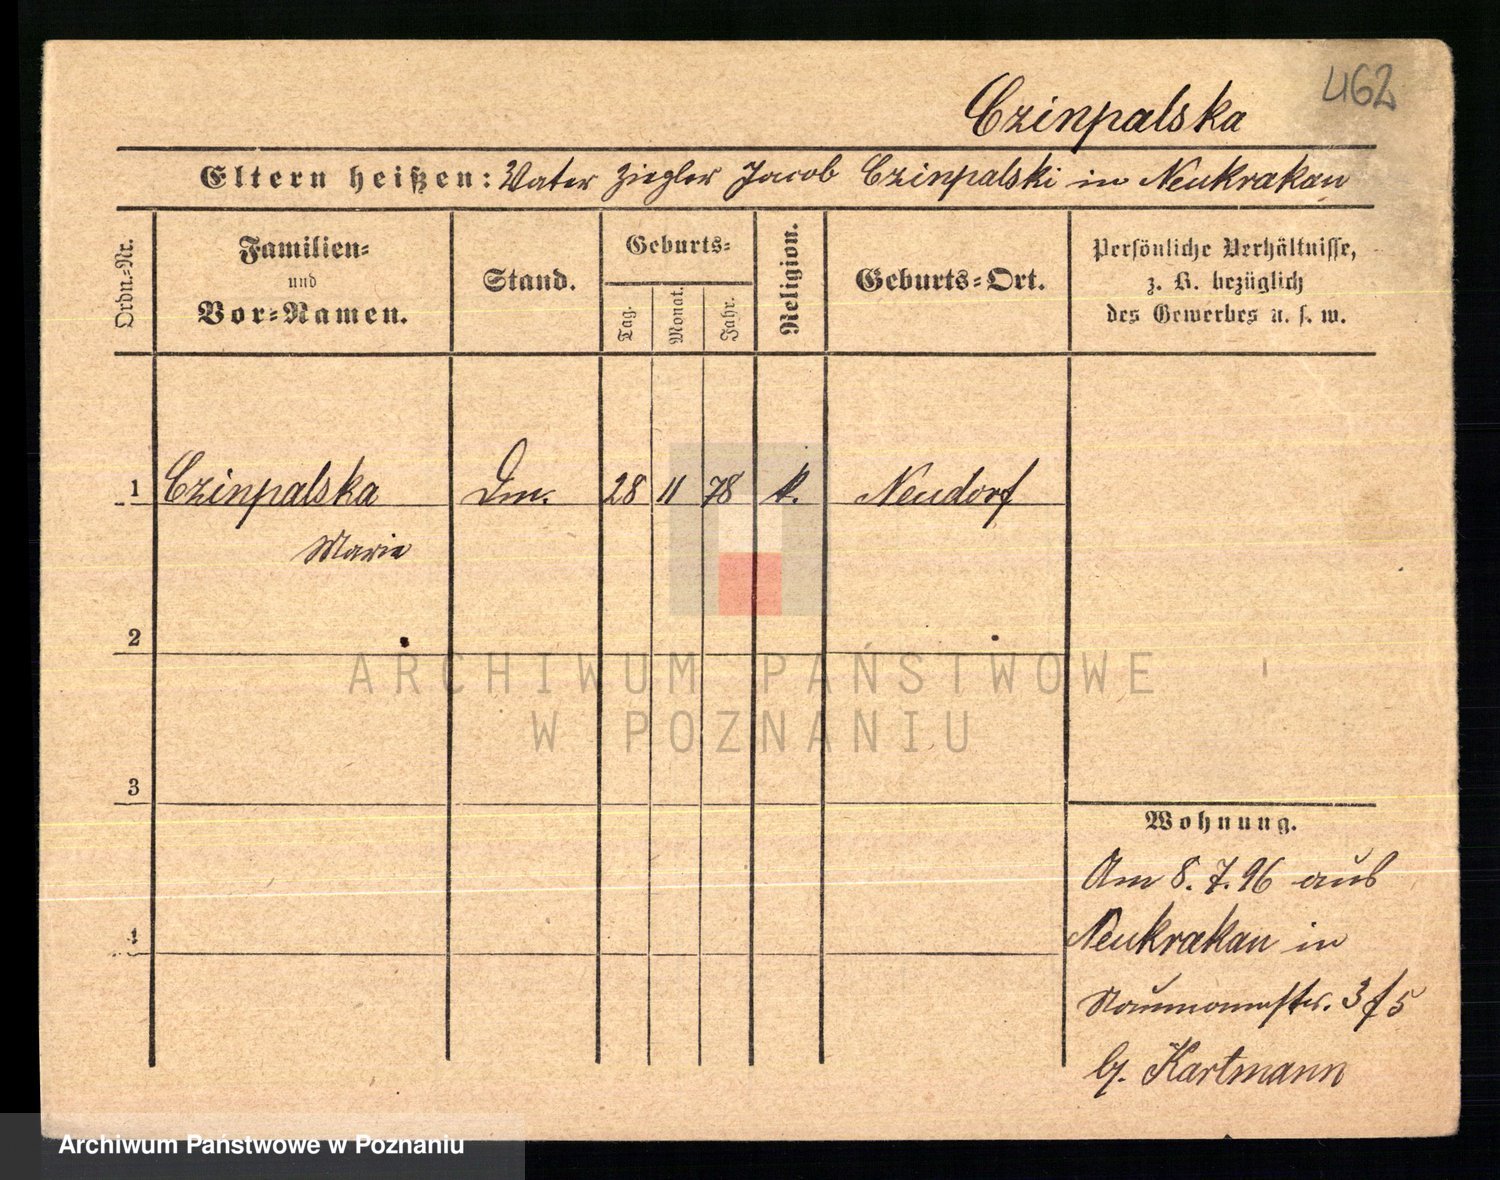 462
Czinpalska
Eltern heißen: Vater Ziegler Jacob Czinpalski in Neukrakau
Ordn.-Nr.
Familien-
und
Vor-Namen.
Stand.
Geburts-
Tag.
Monat.
Jahr.
Religion.
Geburts-Ort.
Persönliche Verhältnisse,
z. B. bezüglich
des Gewerbes u. s. w.
1 Czinpalska 28 11 78 k. Neudorf
Marie
2
3
4
Wohnung.
Am 8.7.96 aus
Neukrakau in
Naumannstr. 3 f 5
b. Hartmann
ARCHIWUM PAŃSTWOWE
W POZNANIU
Archiwum Państwowe w Poznaniu